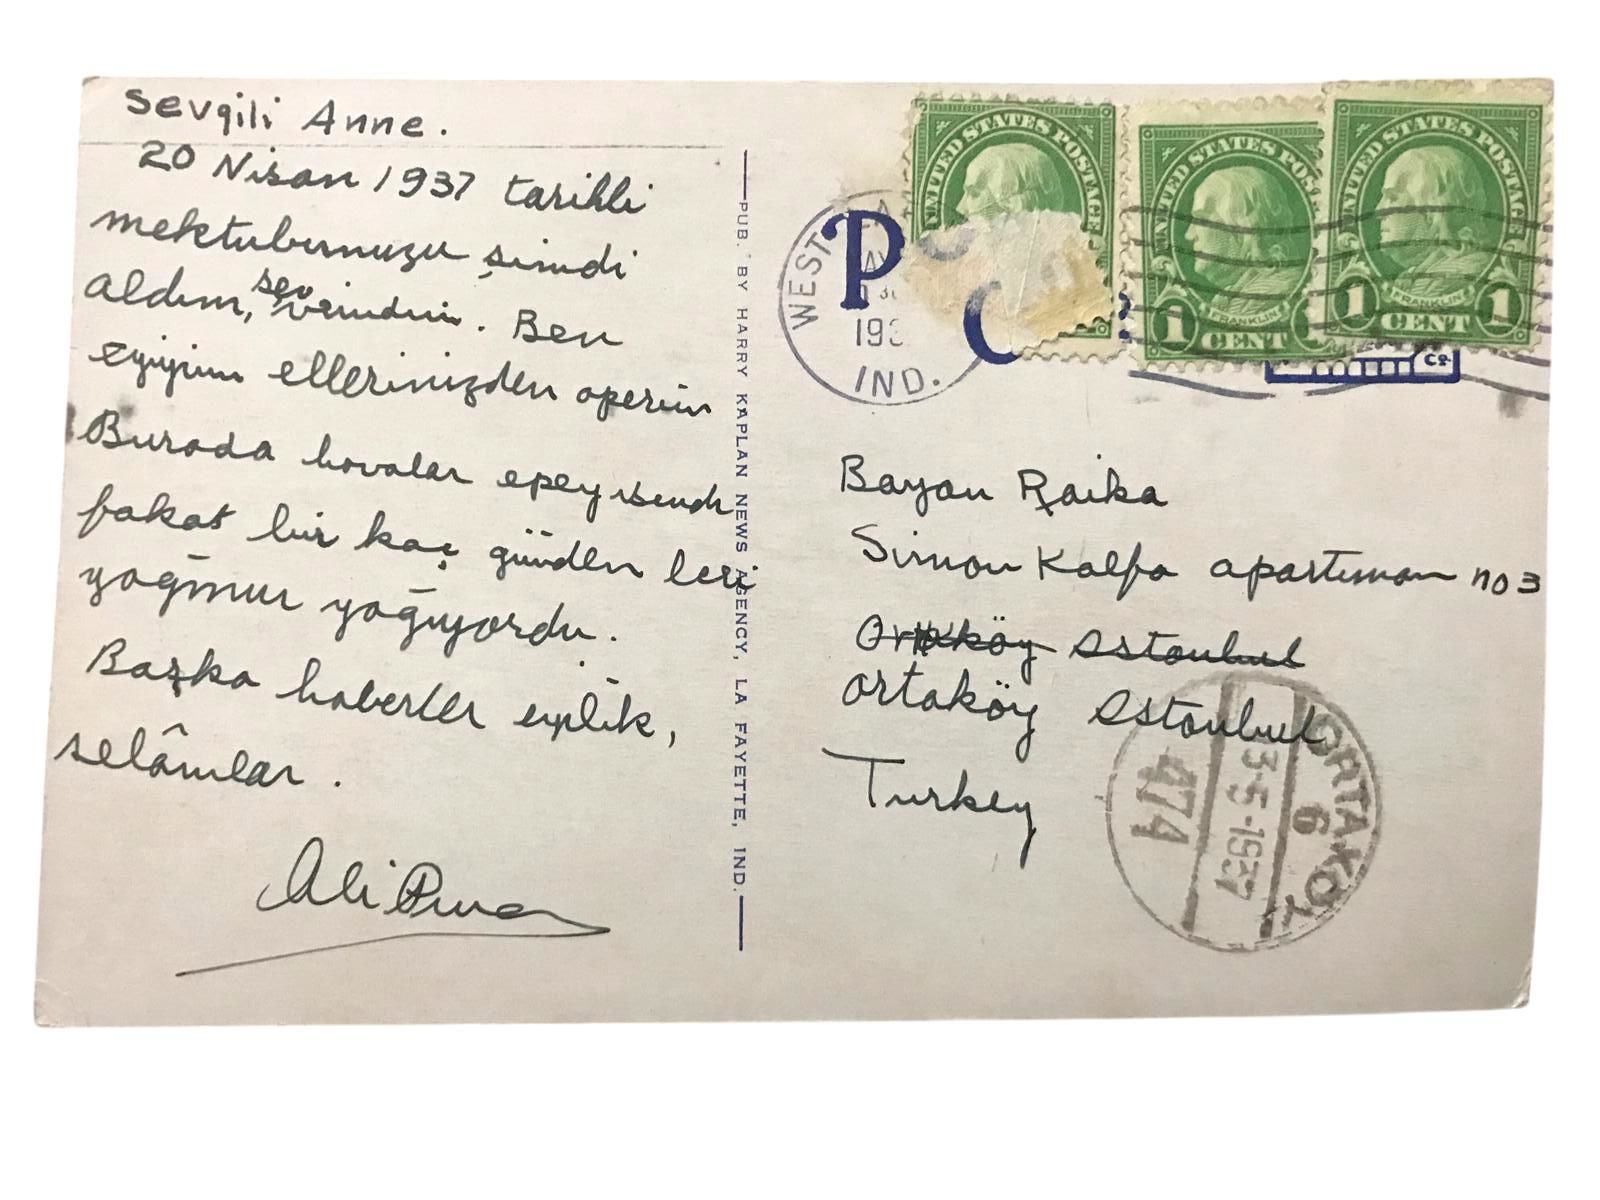 sevgili Anne.
20 Nisan 1937 tarihli
mektubunuzu şimdi
aldım, sevindim. Ben
eyiyim ellerinizden operim
Burada havalar epey ısındı
fakat bir kaç günden beri
yağmur yağıyordu.
Başka haberler eyilik,
selâmlar.
Ali
PUB. BY HARRY KAPLAN NEWS AGENCY, LA FAYETTE, IND.
UNITED STATES POSTAGE
UNITED STATES POSTAGE
FRANKLIN
1 CENT
UNITED STATES POSTAGE
FRANKLIN
1 CENT 1
P
C
Co
WEST
193
IND.
Bayan Raika
Simon Kalfa apartıman no 3
Ortaköy Istanbul
Turkey
ORTAKÖY
6
3-5-1937
474